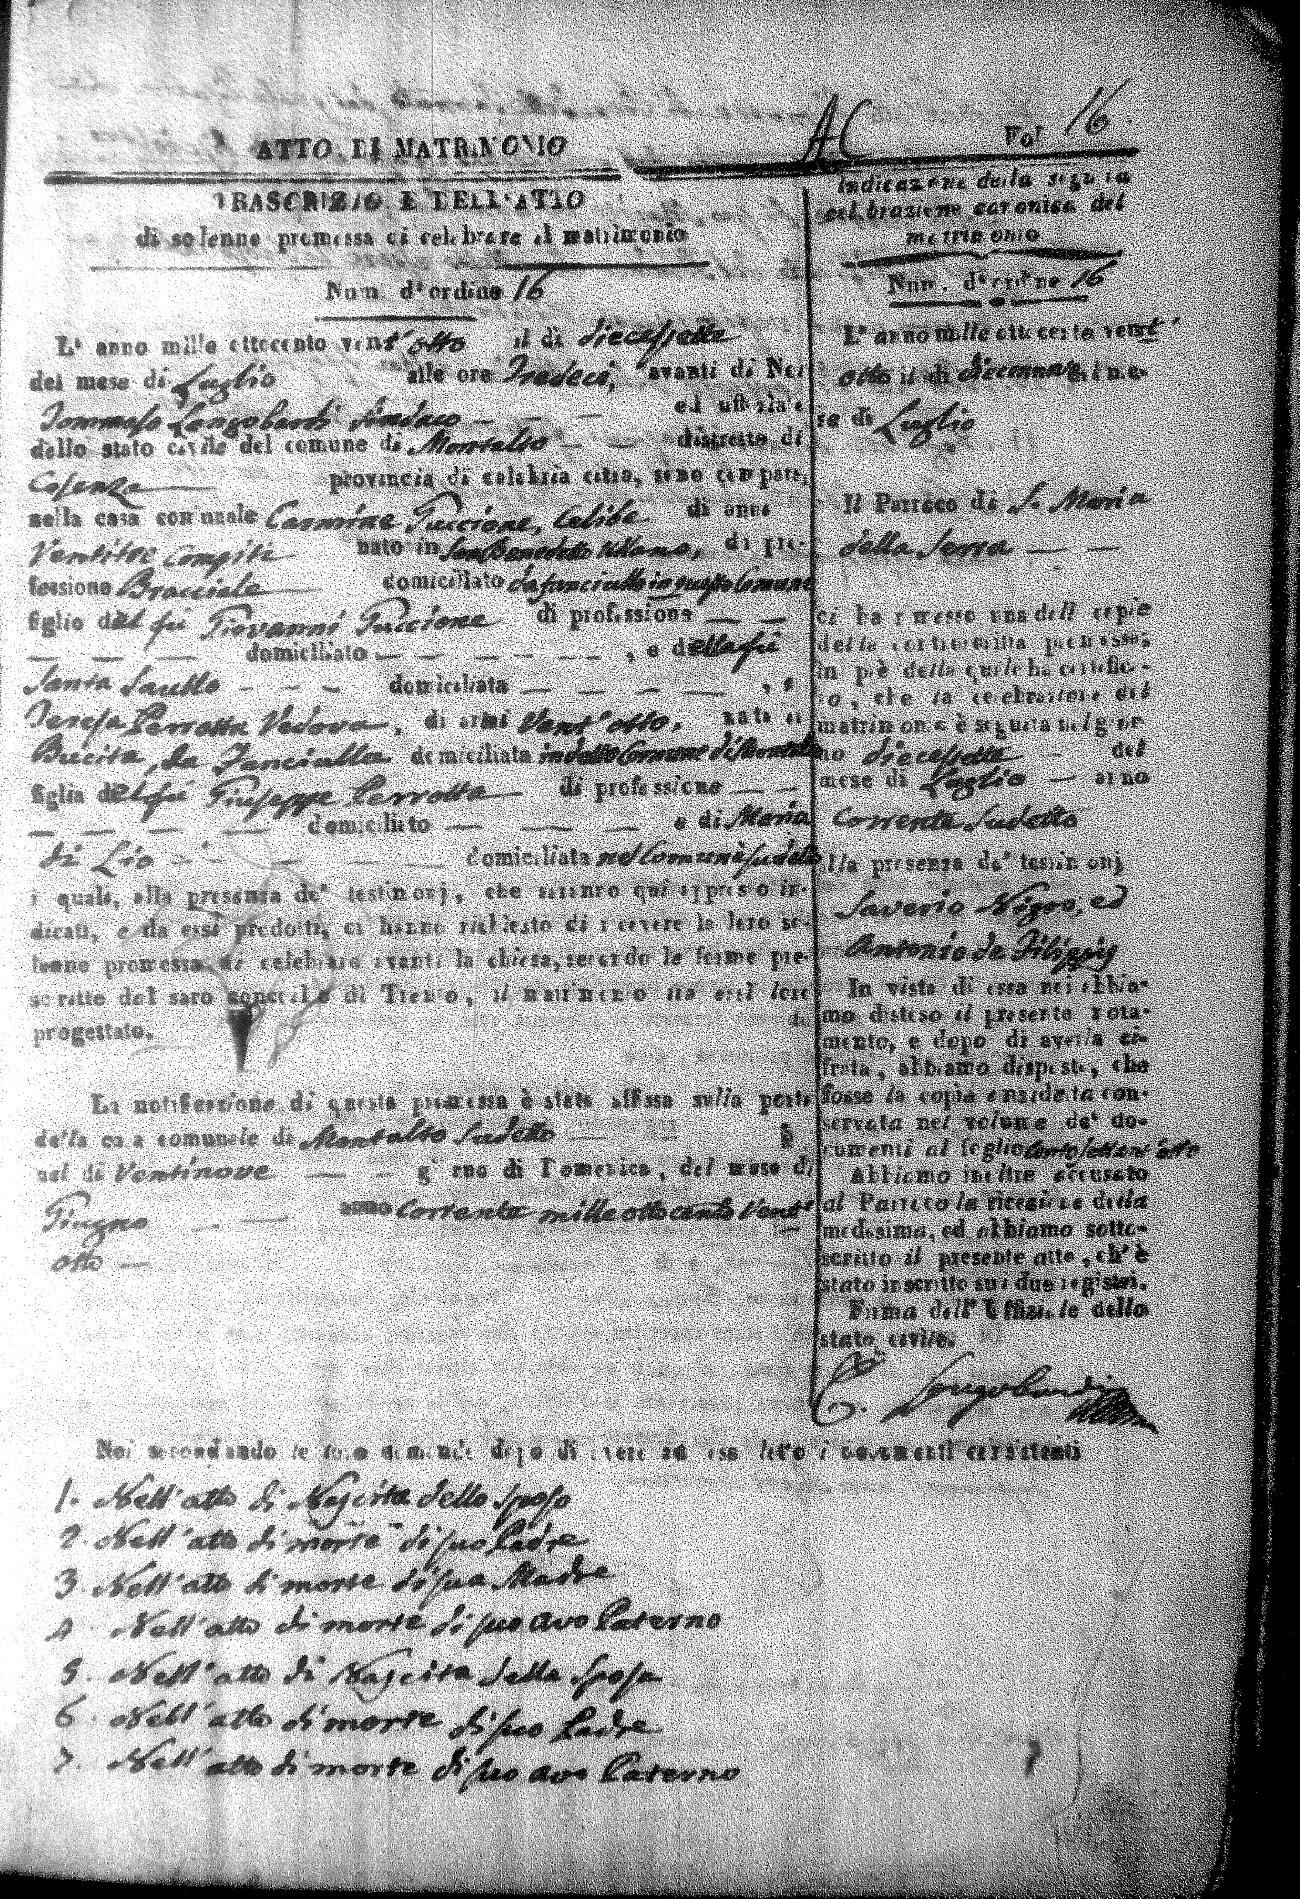 AC
Vol 16.
ATTO DI MATRIMONIO
TRASCRIZIONE DELL'ATTO
di solenne promessa di celebrare il matrimonio
Num. d'ordine 16
L'anno mille ottocento vent'otto il di diecessette
del mese di Luglio alle ore Tredeci, avanti di Noi
Tommaso Longobardi Sindaco ed uffiziale
dello stato civile del comune di Montalto distretto di
Cosenza provincia di calabria citra, sono comparsi
nella casa comunale Carmine Puccione, Celibe di anni
Ventitre compiti nato in San Benedetto Ullano, di pro-
fessione Bracciale domiciliato da fanciullo in questo Comune
figlio del fu Giovanni Puccione di professione
domiciliato , e della fu
Santa Sautto domiciliata , e
Teresa Perrotta Vedova, di anni Vent'otto, nata in
Bucita, da Fanciulla domiciliata in detto Comune di Montalto
figlia del fu Giuseppe Perrotta di professione
domiciliato e di Maria
di Lio domiciliata nel Comune sudetto
i quali, alla presenza de' testimonj, che saranno qui appresso in-
dicati, e da essi predotti, ci hanno richiesto di ricevere la loro so-
lenne promessa di celebrare avanti la chiesa, secondo le forme pre-
scritte dal sacro concilio di Trento, il matrimonio tra essi loro
progettato.
La notificazione di questa promessa è stata affissa sulla porta
della casa comunale di Montalto Sudetto
nel di Ventinove giorno di Domenica, del mese di
Giugno anno Corrente mille ottocento Vent'
otto
Indicazione della seguita
celebrazione canonica del
matrimonio
Num. d'ordine 16
L'anno mille ottocento vent'
otto il di diecennove del me-
se di Luglio
Il Parroco di S. Maria
della Serra
ci ha rimesso una delle copie
della controscritta promessa;
in piè della quale ha certifica-
to, che la celebrazione del
matrimonio è seguita nel gior-
no diecessette del
mese di Luglio anno
Corrente Sudetto
alla presenza de' testimonj
Saverio Nigro, ed
Antonio de Filippis
In vista di essa noi abbia-
mo disteso il presente nota-
mento, e dopo di averla ci-
frata, abbiamo disposto, che
fosse la copia anzidetta con-
servata nel volume de' do-
cumenti al foglio cento settant'otto
Abbiamo inoltre accusato
al Parroco la ricezione della
medesima, ed abbiamo sotto-
scritto il presente atto, ch'è
stato inscritto sui due registri.
Firma dell'Uffiziale dello
stato civile.
Longobardi
Noi secondando le loro domande dopo di avere ad essi letto i documenti consistenti
1. Nell'atto di Nascita dello Sposo
2. Nell'atto di morte di suo Padre
3. Nell'atto di morte di sua Madre
4. Nell'atto di morte di suo avo Paterno
5. Nell'atto di Nascita della Sposa
6. Nell'atto di morte di suo Padre
7. Nell'atto di morte di suo avo Paterno